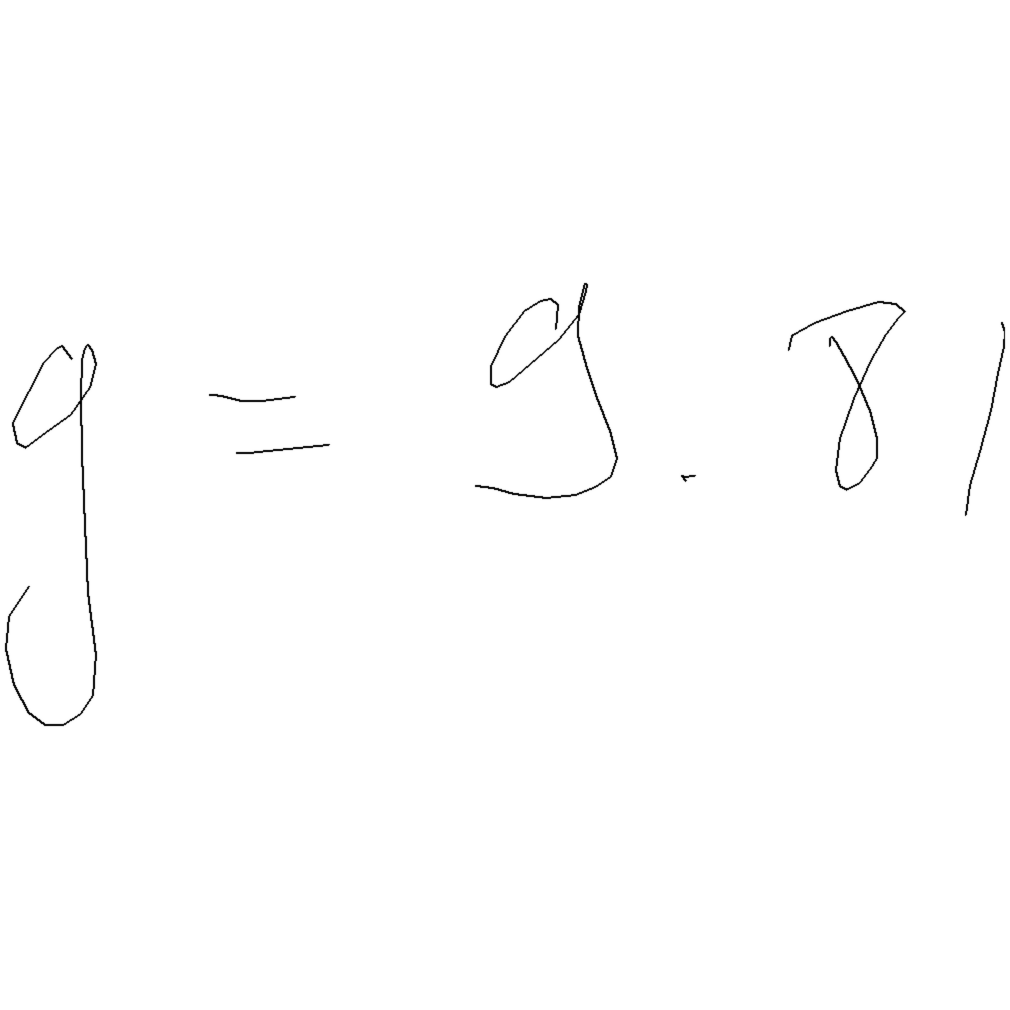 g = 9.81